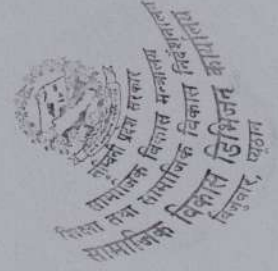 लुम्बिनी प्रदेश सरकार
सामाजिक विकास मन्त्रालय
शिक्षा तथा सामाजिक विकास निर्देशनालय
सामाजिक विकास डिभिजन कार्यालय
बिजुवार, प्यूठान